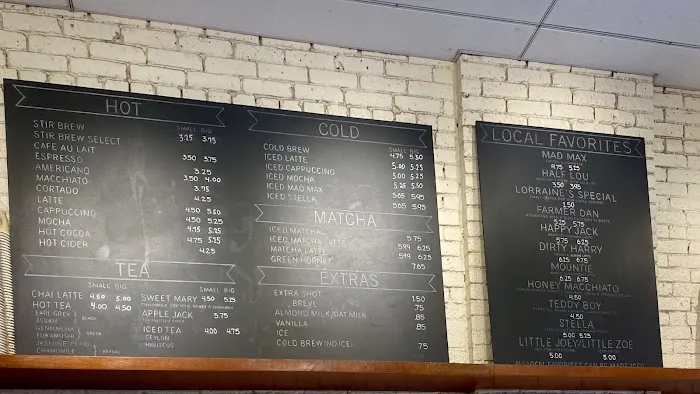 HOT
SMALL BIG
STIR BREW 3.25 3.75
STIR BREW SELECT
CAFE AU LAIT 3.50 3.75
ESPRESSO
AMERICANO 3.25
MACCHIATO 3.50 4.00
CORTADO 3.75
LATTE 4.25
CAPPUCCINO 4.50 5.50
MOCHA 4.50 5.25
HOT COCOA 4.75 5.25
HOT CIDER 4.75 5.25
4.25
TEA
SMALL BIG
CHAI LATTE 4.50 5.00
HOT TEA 4.00 4.50
EARL GREY
ASSAM
BLACK
GENMAICHA
FUKAMUSHI
GREEN
JASMINE PEARL
CHAMOMILE
HERBAL
SMALL BIG
SWEET MARY 4.50 5.25
APPLE JACK 5.75
ICED TEA 4.00 4.75
CEYLON
HIBISCUS
COLD
SMALL BIG
COLD BREW 4.75 5.50
ICED LATTE 5.00 5.25
ICED CAPPUCCINO 5.00 5.25
ICED MOCHA 5.25 5.50
ICED MAD MAX 5.65 5.95
ICED STELLA 5.65 5.95
MATCHA
ICED MATCHA 5.75
ICED MATCHA LATTE 5.99 6.25
MATCHA LATTE 5.99 6.25
GREEN HORNET 7.65
EXTRAS
EXTRA SHOT 1.50
BREVE .75
ALMOND MILK/OAT MILK .85
VANILLA .85
ICE
COLD BREW(NO ICE) .75
LOCAL FAVORITES
MAD MAX
4.75 5.25
HALF LOU
3.50 3.95
LORRAINE'S SPECIAL
1.50
FARMER DAN
5.25 5.75
HAPPY JACK
5.75 6.25
DIRTY HARRY
6.25 6.75
MOUNTIE
6.25 6.75
HONEY MACCHIATO
4.50
TEDDY BOY
4.50
STELLA
5.00 5.25
LITTLE JOEY/LITTLE ZOE
5.00 5.00
ALL LOCAL FAVORITES CAN BE MADE ICED